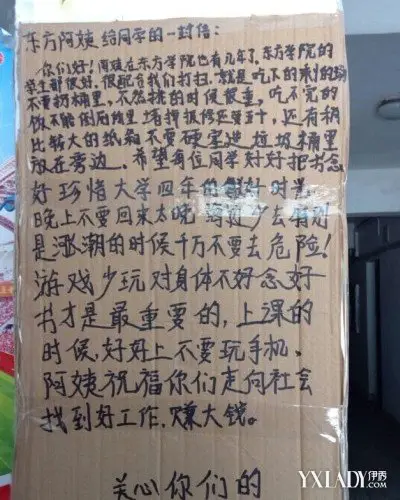 东方阿姨给同学的一封信：
你们好！阿姨在东方学院也有几年了，东方学院的
学生都很好，很配合我们打扫。就是吃下的
不要扔桶里，不然挑的时候很重，吃不完的
你不能倒厕所里，还有稍
比较大的纸箱不要硬塞进垃圾桶里
放在旁边，希望每位同学好好把书念
好珍惜大学四年的
晚上不要回来太晚，少去特别
是涨潮的时候千万不要去危险！
游戏少玩对身体不好念好
书才是最重要的，上课的
时候，好好上不要玩手机、
阿姨祝福你们走向社会
找到好工作，赚大钱。
关心你们的
YXLADY.COM伊秀